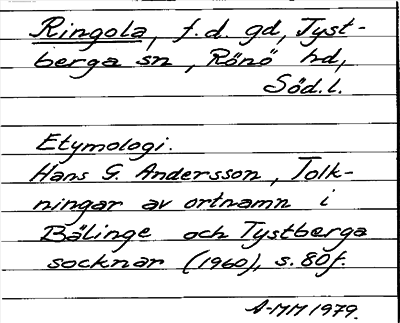 Ringola, f.d. gd, Tyst-
berga sn, Rönö hd,
Söd.l.
Etymologi.
Hans G. Andersson, Tolk-
ningar av ortnamn i
Bälinge och Tystberga
socknar (1960), s. 80f.
A-MM 1979.